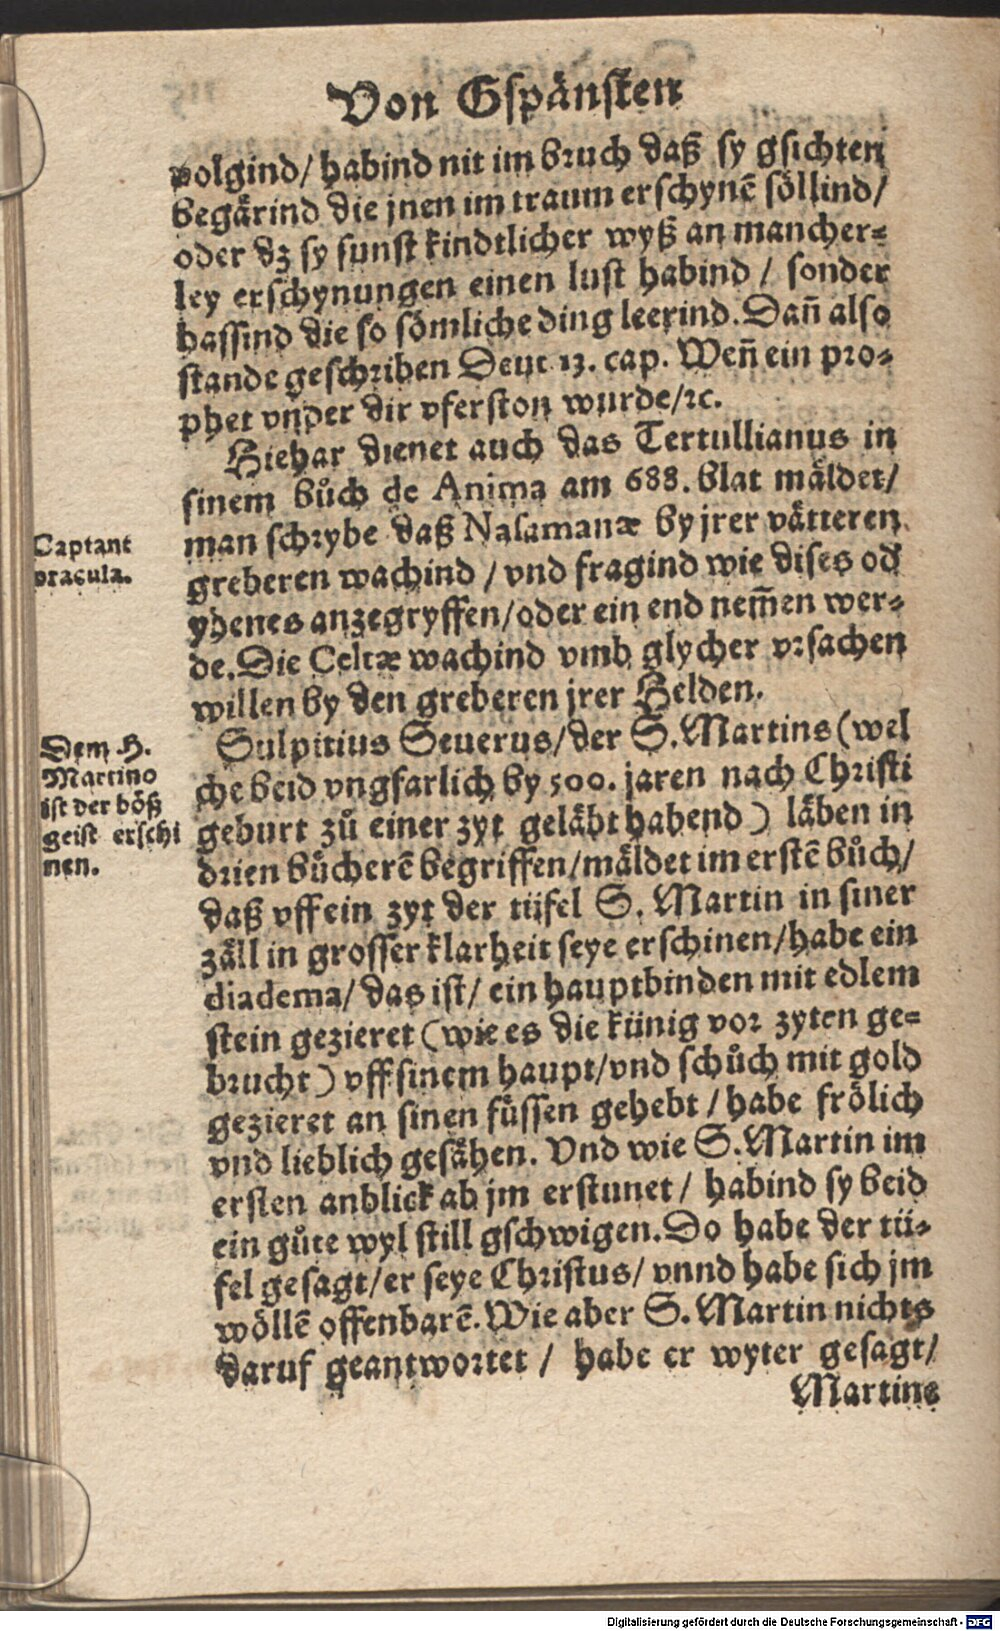 Von Gspänsten
volgind/ habind nit im bruch daß sy gsichten
begärind die jnen im traum erschynē söllind/
oder dz sy sunst kindtlicher wyß an mancher-
ley erschynungen einen lust habind / sonder
hassind die so sömliche ding leerind. Dañ also
stande geschriben Deut 13. cap. Weñ ein pro-
phet vnder dir vferston wurde/ꝛc.
Hiehar dienet auch das Tertullianus in
sinem bůch de Anima am 688. blat mäldet/
man schrybe daß Nasamanæ by jrer vätteren
greberen wachind / vnd fragind wie dises od
yhenes anzegryffen/oder ein end nem̄en wer-
de. Die Celtæ wachind vmb glycher vrsachen
willen by den greberen jrer Helden.
Captant
oracula.
Sulpitius Seuerus/der S. Martins (wel
che beid vngfarlich by 500. jaren nach Christi
geburt zů einer zyt geläbt habend) läben in
drien bůcherē begriffen/mäldet im erstē bůch/
daß vff ein zyt der tüfel S. Martin in siner
zäll in grosser klarheit seye erschinen/habe ein
diadema/ das ist/ ein hauptbinden mit edlem
stein gezieret (wie es die künig vor zyten ge-
brucht) vff sinem haupt/vnd schůch mit gold
gezieret an sinen füssen gehebt / habe frölich
vnd lieblich gesähen. Vnd wie S. Martin im
ersten anblick ab jm erstunet / habind sy beid
ein gůte wyl still gschwigen. Do habe der tü-
fel gesagt/er seye Christus/ vnnd habe sich jm
wöllē offenbarē. Wie aber S. Martin nichts
daruf geantwortet / habe er wyter gesagt/
Martine
Dem H.
Martino
ist der böß
geist erschi
nen.
Digitalisierung gefördert durch die Deutsche Forschungsgemeinschaft - DFG